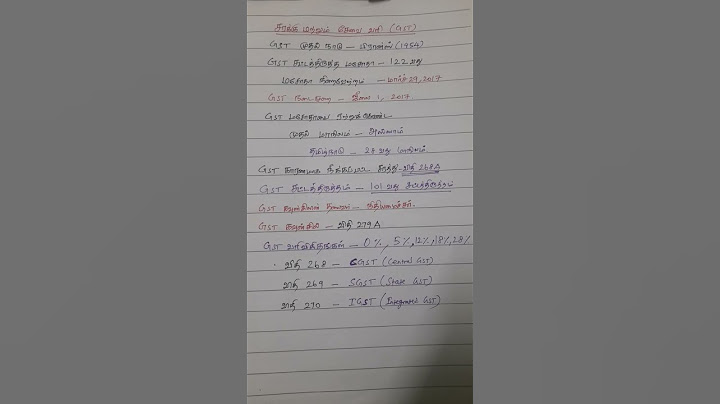 சரக்கு மற்றும் சேவை வரி (GST)
GST முதல் நாடு - பிரான்ஸ் (1954)
GST சட்டத்திருத்த மசோதா - 122 வது
மசோதா நிறைவேற்றம் - மார்ச் 29, 2017
GST நடைமுறை - ஜூலை 1, 2017
GST மசோதாவை ஏற்றுக்கொண்ட
முதல் மாநிலம் - அஸ்ஸாம்
தமிழ்நாடு - 28 வது மாநிலம்
GST காரணமாக நீக்கப்பட்ட சரத்து - விதி 268A
GST சட்டத்திருத்தம் - 101 வது சட்டத்திருத்தம்
GST கவுன்சிலின் தலைவர் - நிதியமைச்சர்.
GST கவுன்சில் - விதி 279 A
GST வரிவிகிதங்கள் - 0%, 5%, 12%, 18%, 28%
விதி 268 - CGST (Central GST)
விதி 269 - SGST (State GST)
விதி 270 - IGST (Integrated GST)